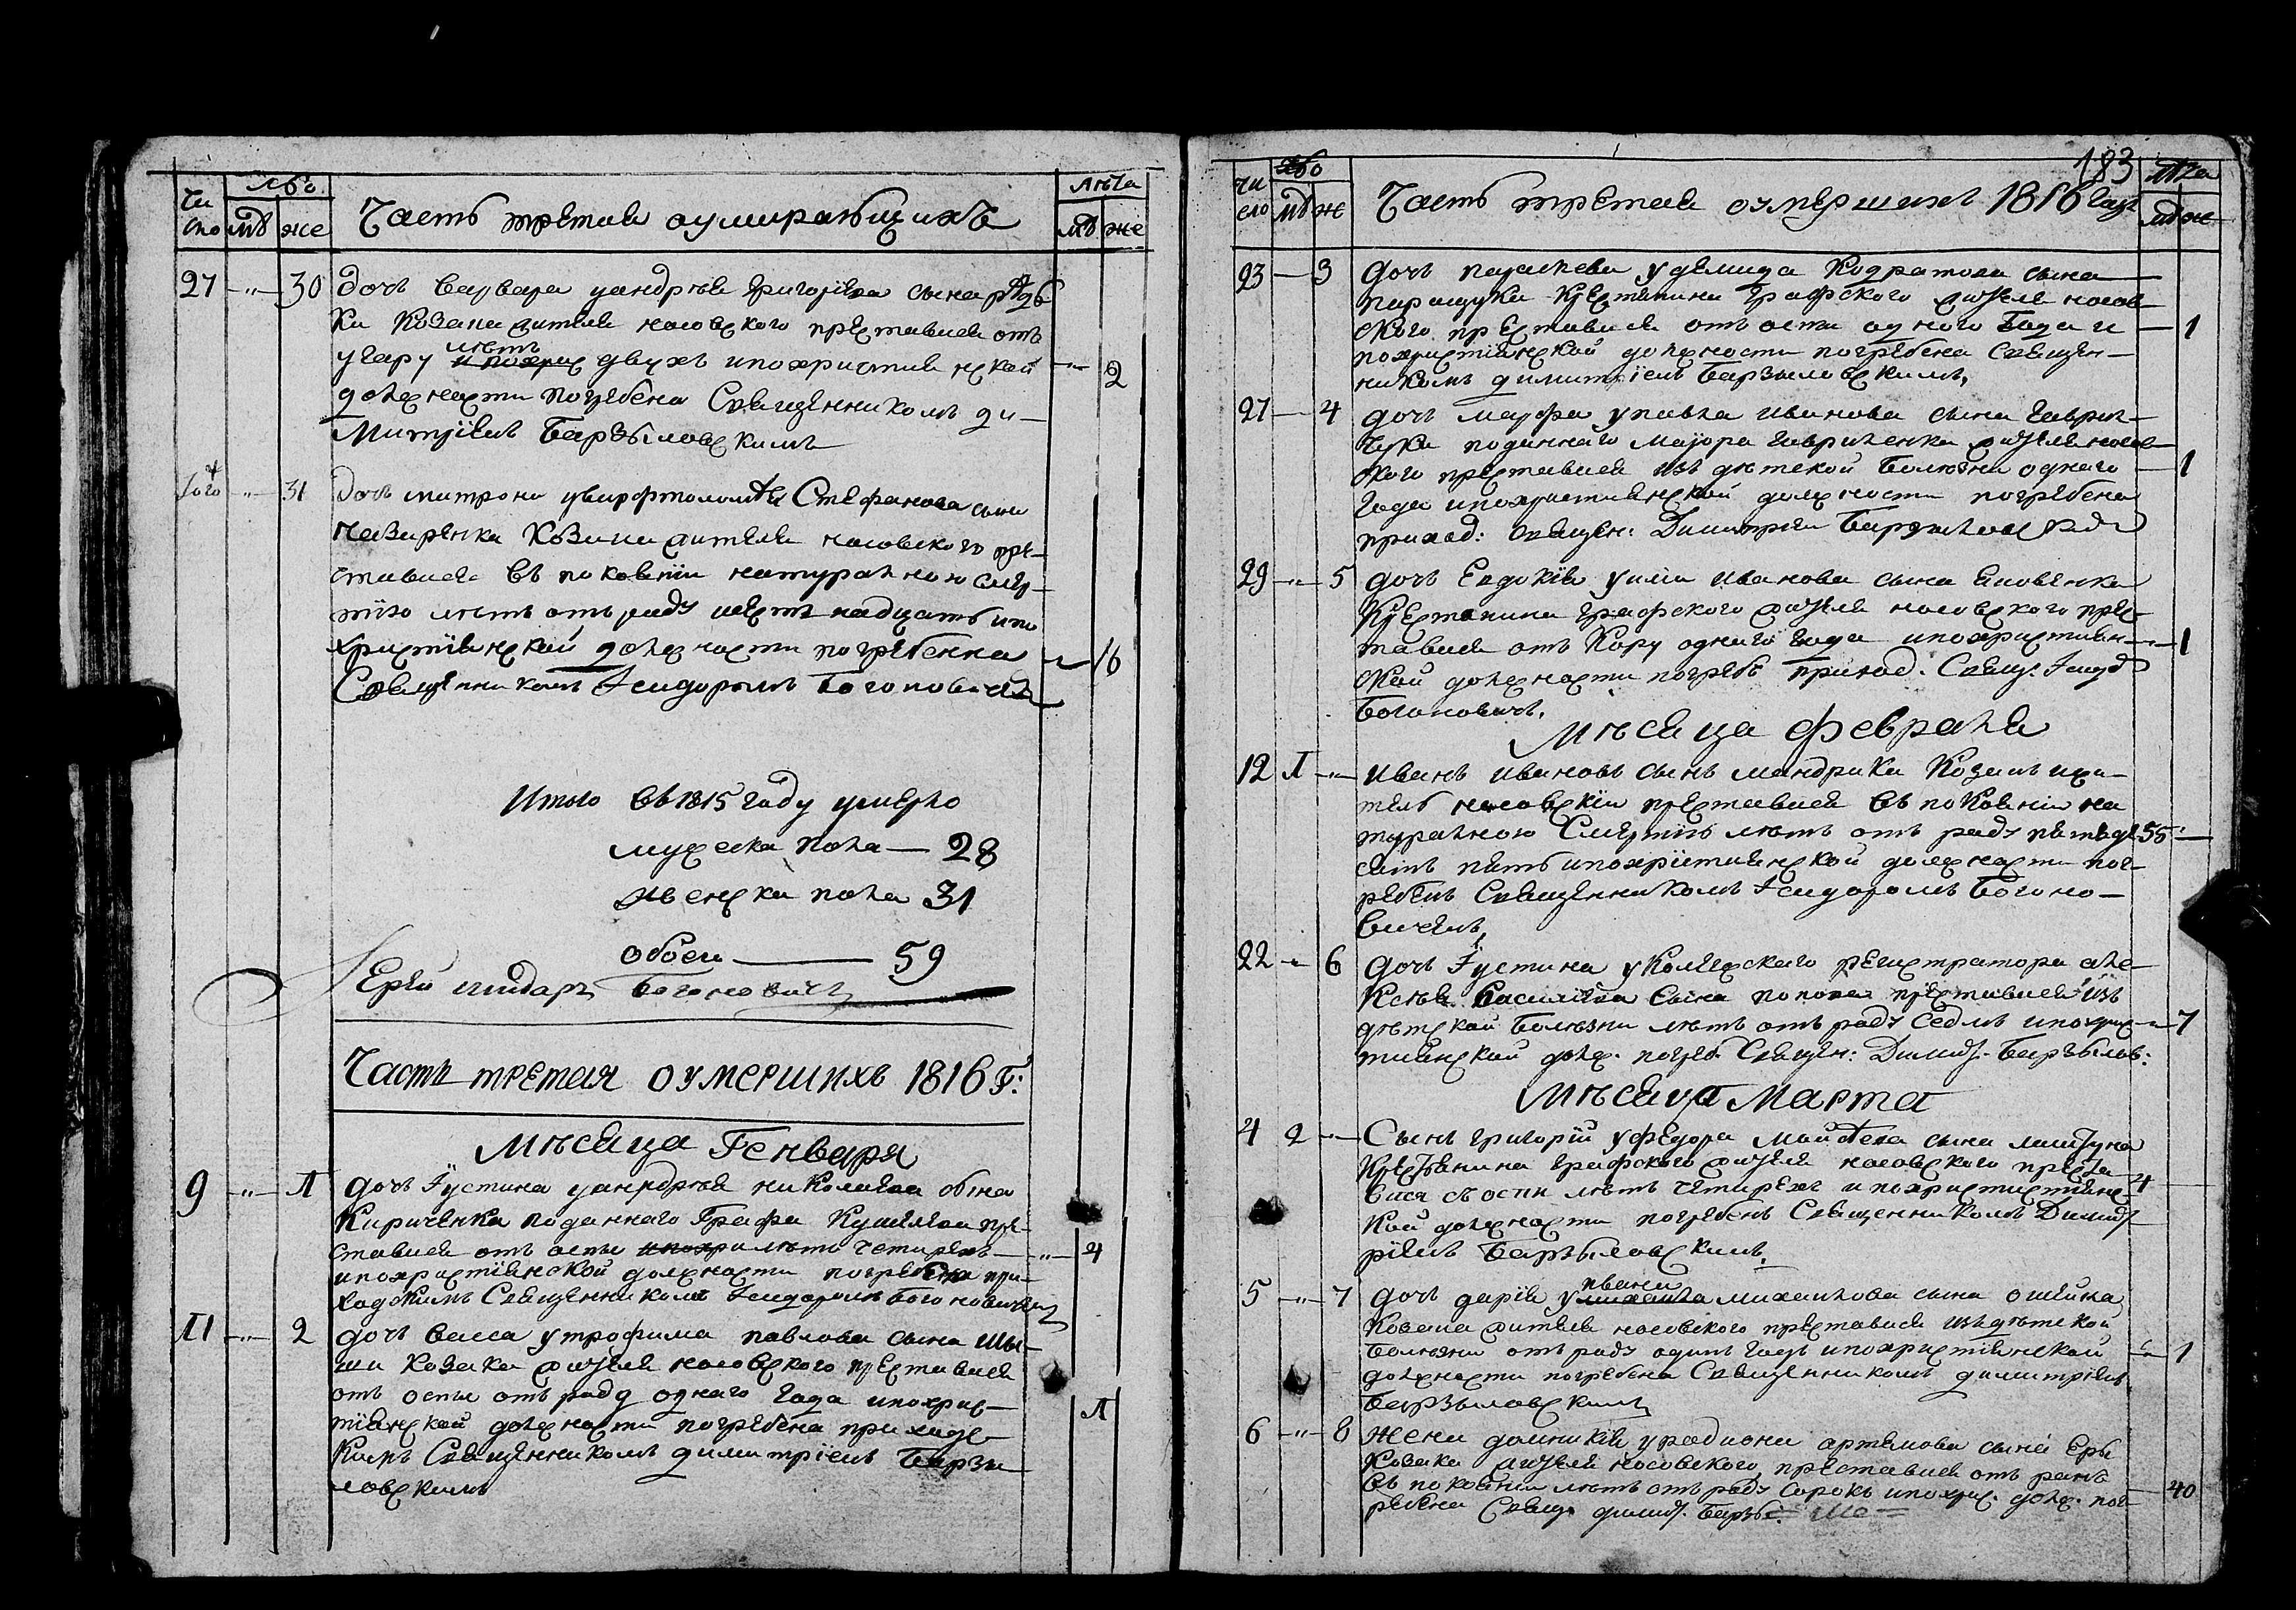 Чи
сло
мб
же
Часть третия о умирающихъ
лѣта
мб
же
27 — 30 дочь варвара у андрѣя григорієва сына
ки козака жителя носовского преставися отъ
угару лѣтъ двухъ и похристиянской — 2
должности погребена Священникомъ ди-
митріемъ Барзыловскимъ
того 31 дочь матрона у варфоломѣя Стефанова сына
козака жителя носовского пре-
ставися въ покаяніи натуралною смер-
тію лѣтъ отъ роду шестнадцать и по
христіянской должности погребенна — 16
Священникомъ Ісидоромъ Богоновичемъ
Итого въ 1815 году умерло
мужеска пола — 28
женска пола 31
обоего — 59
Ерей исидоръ Богоновичъ
Часть третая о умершихъ 1816 г:
Мѣсяца Генваря
9 — Л дочь Іустина у николаева сына
Кириченка поданнаго Графа пре-
ставися отъ оспы лѣтъ четирехъ — 4
и похристіянской должности погребена при-
ходскимъ Священникомъ Ісидоромъ Богоновичемъ
Л1 — 2 дочь васса у трофима павлова сына
козака жителя носовского преставися
отъ оспы отъ роду одного года и похрис-
тіянской должности погребена приходс- Л
кимъ Священникомъ димитріемъ Барзи-
ловскимъ
183
чи
сло
мб
же
Часть третая о умершихъ 1816 года
лѣта
мб
же
23 — 3 дочь параскева у демида Кодратова сына
паращука крестянина графского жителя носов-
ского преставися отъ оспи одного года и — 1
похристіянской должности погребена Священ-
никомъ димитріемъ Барзыловскимъ,
27 — 4 дочь марфа у павла иванова сына гаврил-
чука поданнаго маіора гавриленка жителя носов-
ского преставися изъ дѣтской болѣзни одного — 1
года и похристиянской должности погребена
приход: священ: Димитрием
29 — 5 дочь Евдокія у иванова сына яковенка
крестянина графского жителя носовского прес-
тавися отъ кору одного года и похристиян- — 1
ской должности погребъ приход. Свящ. Ісид
Богоновичъ.
Мѣсяца февраля
12 Л — иванъ ивановъ сынъ мандрика козакъ жи-
тель носовскій преставися въ покаяніи на
туралною Смертію лѣтъ отъ роду пятьде- 55 —
сятъ пять и похристиянской должности пог-
ребенъ Священникомъ Ісидоромъ Богоно-
вичемъ,
22 — 6 дочь Іустина у Колежскаго регистратора але-
ксѣя василіева сына попова преставися изъ
дѣтской болѣзни лѣтъ отъ роду седмъ и похрис — 7
тиянской долж. погреб. Священ: Димит. Барзылов:
Мѣсяца Марта
4 2 — Сынъ григорій у федора сына
крестянина графского жителя носовского преста-
вися съ оспи лѣтъ четирехъ и похристистіянс- 4
кой должности погребенъ Священникомъ Димит
ріемъ Барзыловскимъ.
5 — 7 дочь дарія у ивана михайлова сына
козака жителя носовского преставися изъ дѣтской
болѣзни отъ роду одинъ годъ и похристіянской — 1
должности погребена Священникомъ димитріемъ
Барзыловскимъ
6 — 8 жена домникія у родиона артемова сына
козака жителя носовского преставися отъ
въ покаяніи лѣтъ отъ роду сорокъ и похрис. долж. пог- — 40
ребена Свящ. димит. Барзы: